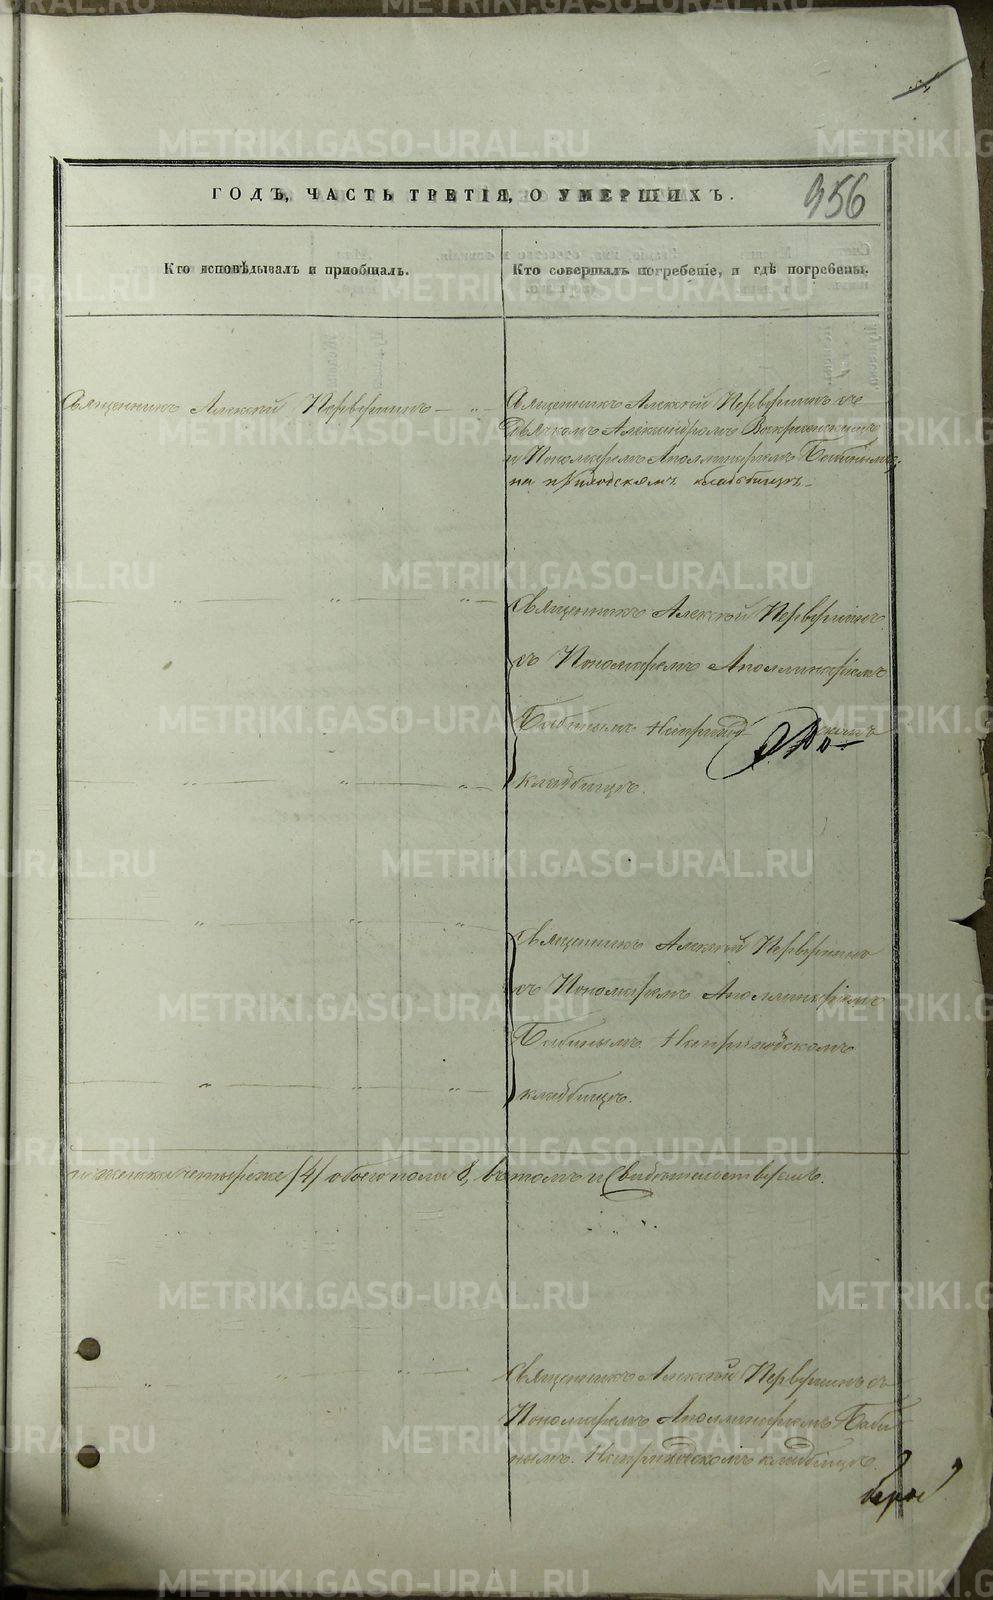 ГОДЪ, ЧАСТЬ ТРЕТІЯ, О УМЕРШИХЪ.
956
Кто исповѣдывалъ и приобщалъ.
Кто совершалъ погребеніе, и гдѣ погребены.
Священникъ Алексій Первушинъ
Священникъ Алексій Первушинъ съ
Дьячкомъ Александромъ
и Пономаремъ Аполлинаріемъ Бабинымъ
на приходскомъ кладбищѣ
Священникъ Алексій Первушинъ
съ Пономаремъ Аполлинаріемъ
Бабинымъ На приход скомъ
кладбищѣ.
Священникъ Алексій Первушинъ
съ Пономаремъ Аполлинаріемъ
Бабинымъ На приходскомъ
кладбищѣ.
и женска четыре /4/ обоего пола 8, въ томъ и Свидѣтельствуемъ.
Священникъ Алексій Первушинъ съ
Пономаремъ Аполлинаріемъ Баби
нымъ. На приходскомъ кладбищѣ.
METRIKI.GASO-URAL.RU